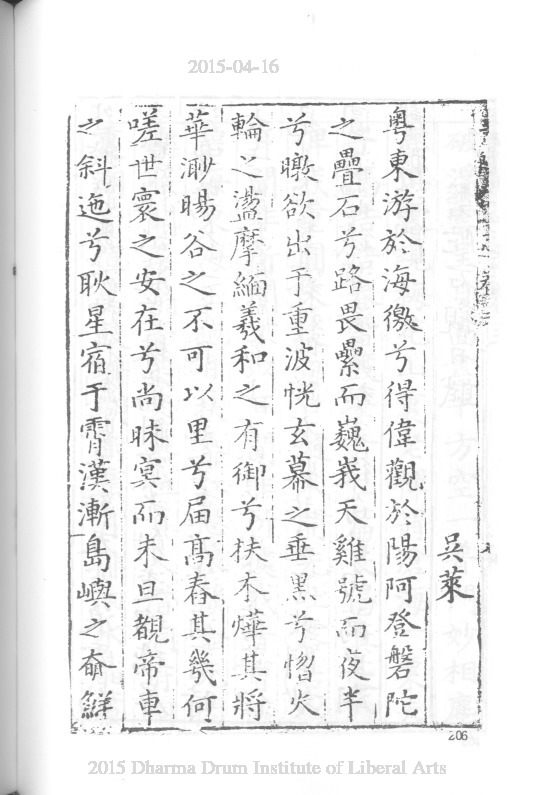 2015-04-16
吳萊
粵東游於海徼兮得偉觀於陽阿登磐陀
之疊石兮路畏壘而巍峩天雞號而夜半
兮暾欲出于重波恍玄幕之垂黑兮㦎火
輪之盪摩緬羲和之有御兮扶木燁其將
華渺暘谷之不可以里兮屆高舂其幾何
嗟世寰之安在兮尚昧冥而未旦覩帝車
之斜迤兮耿星宿于霄漢漸島嶼之奫鮮
206
2015 Dharma Drum Institute of Liberal Arts